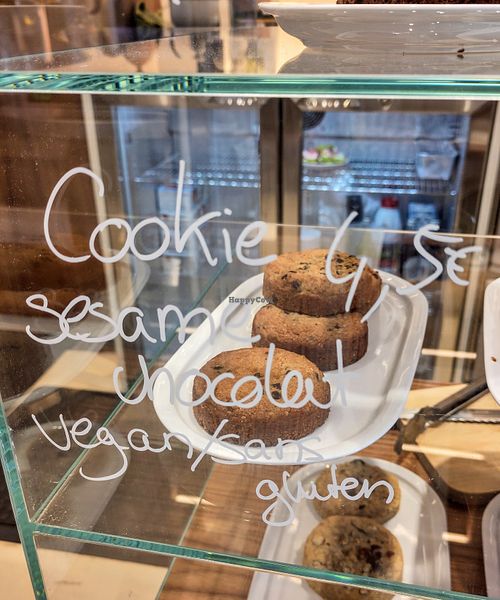 Cookie 4,5€
sesame
chocolat
vegan/sans
gluten
HappyCow